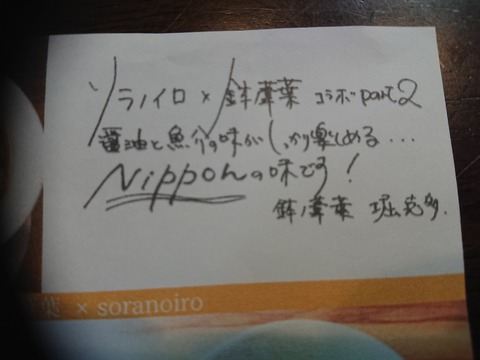 ソラノイロ × 鉢ノ葦葉 コラボpart2
醤油と魚介の味がしっかり楽しめる...
Nipponの味です!
鉢ノ葦葉 堀
葉 × soranoiro